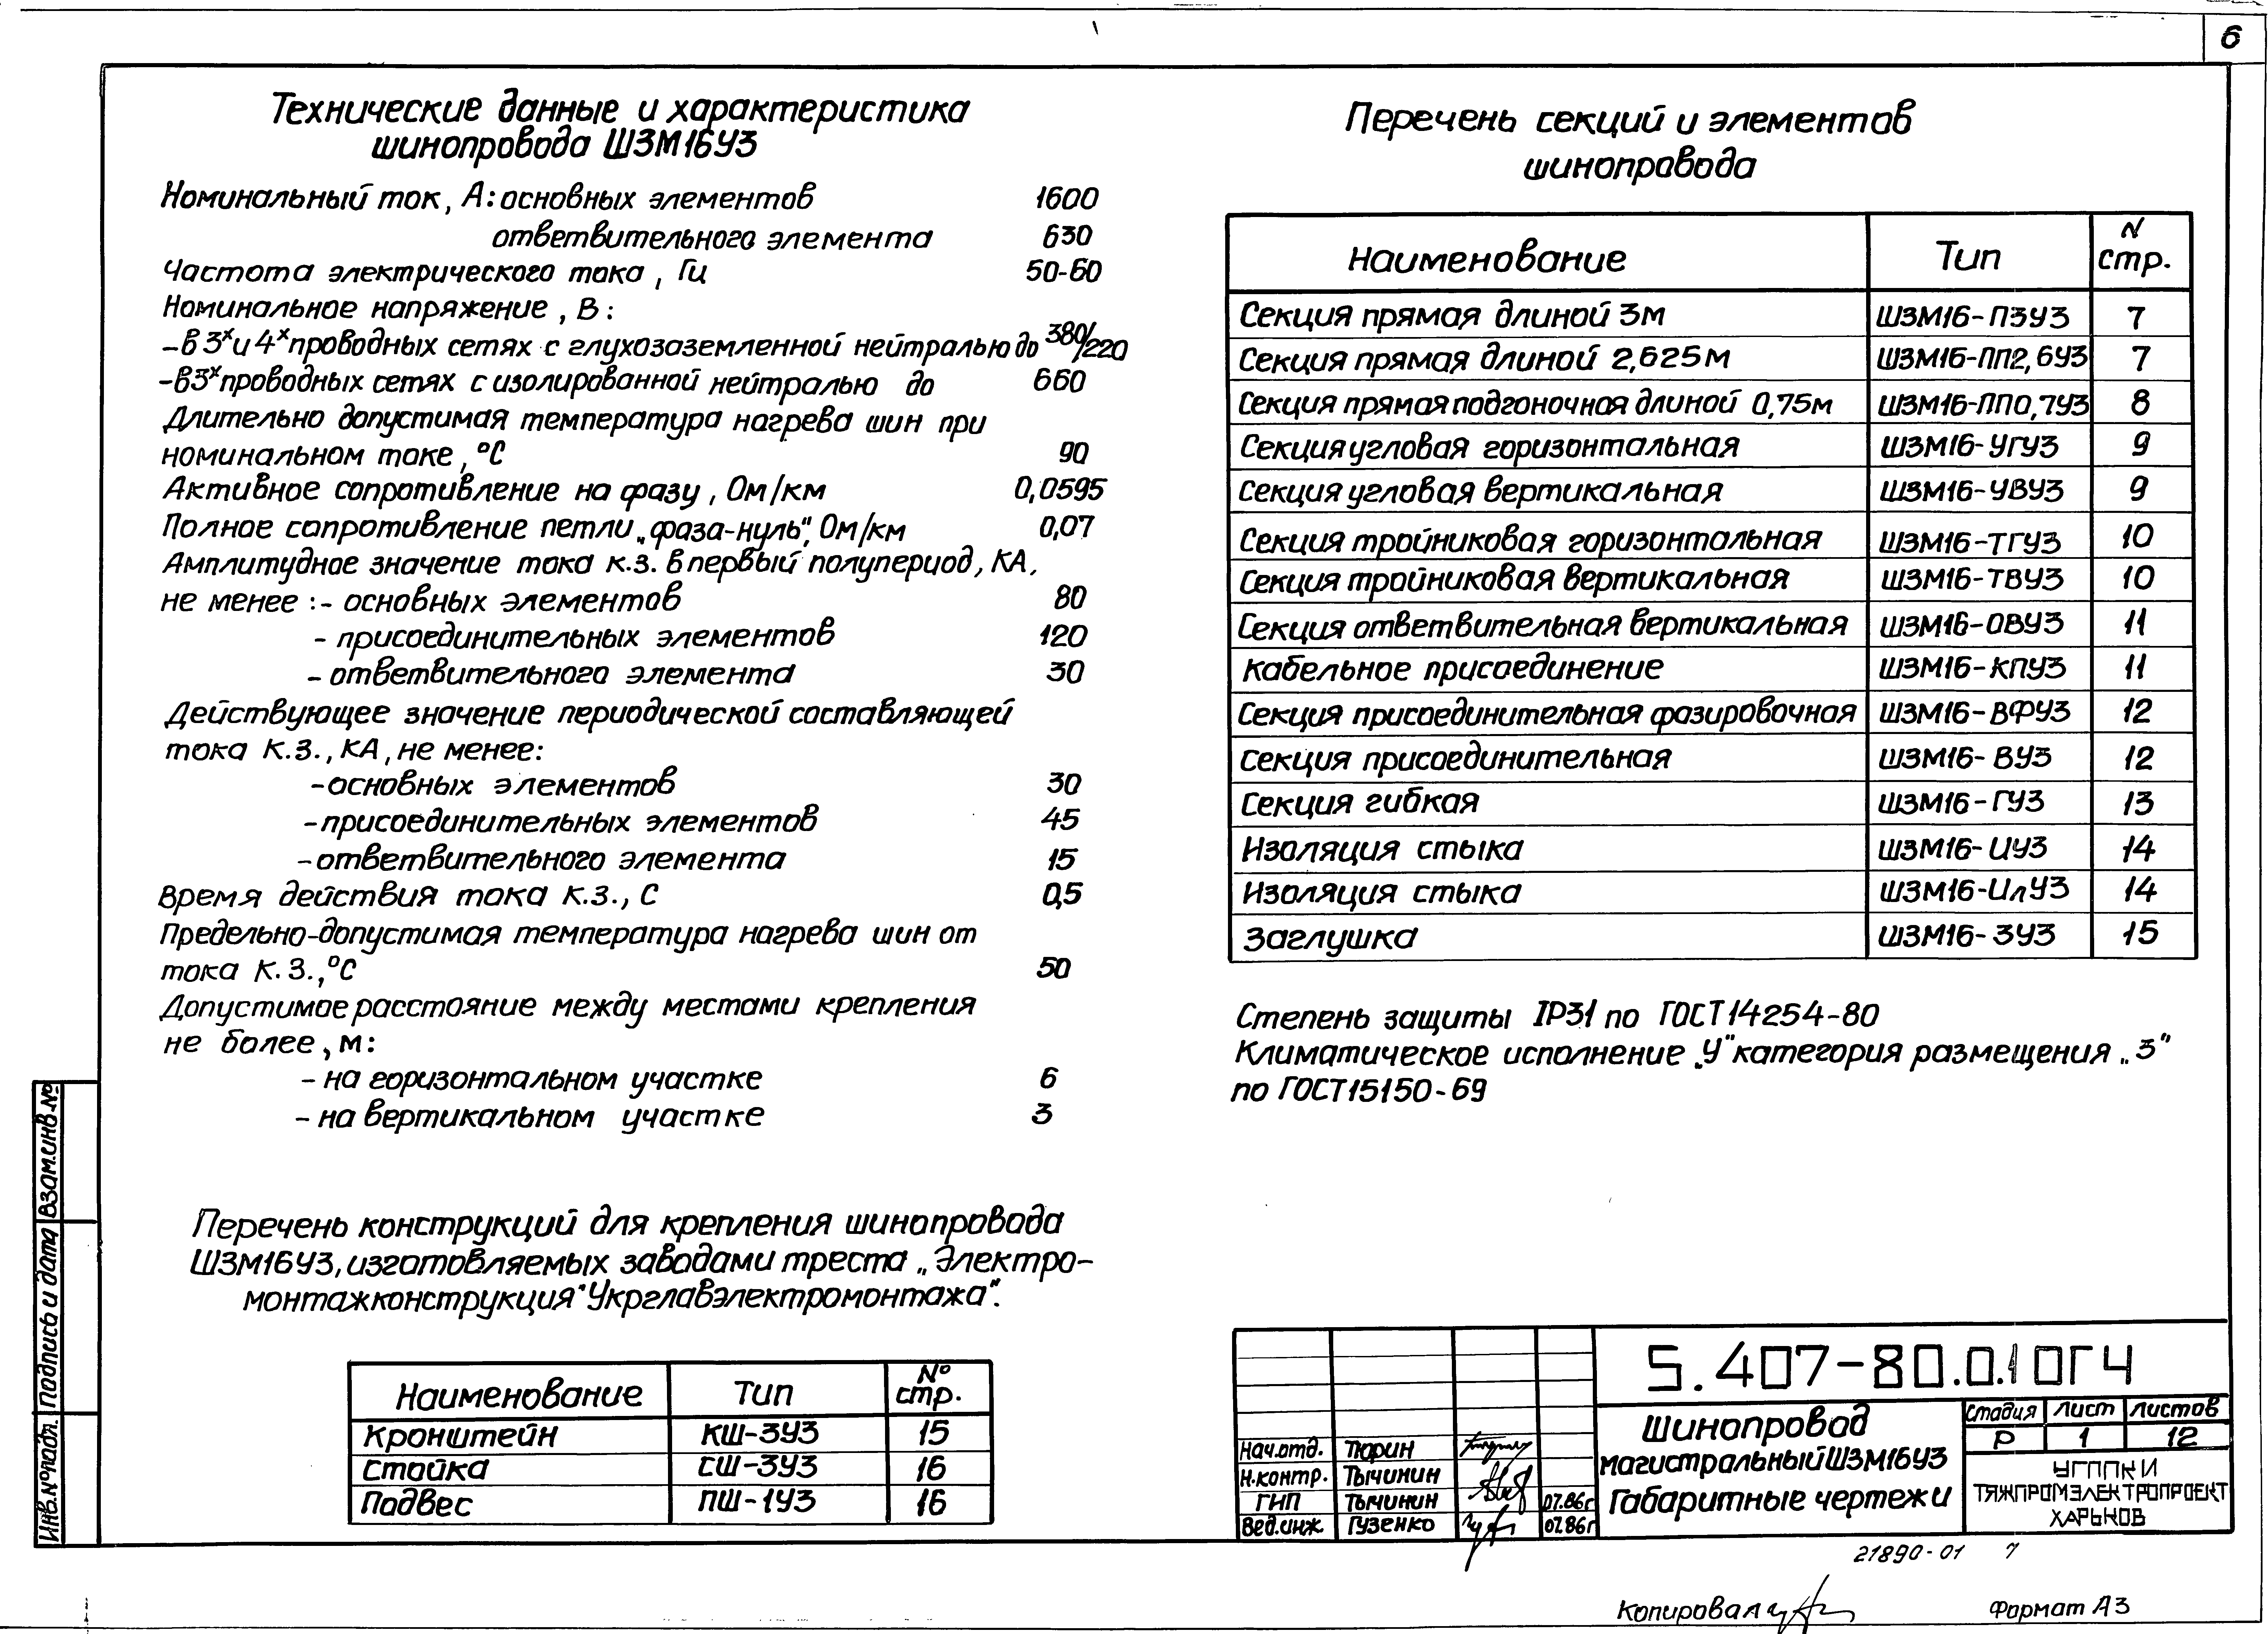 6
Технические данные и характеристика
шинопровода ШЗМ16У3
Номинальный ток, А: основных элементов 1600
ответвительного элемента 630
Частота электрического тока, Гц 50-60
Номинальное напряжение, В:
-в 3х и 4х проводных сетях с глухозаземленной нейтралью до 380/220
-в 3х проводных сетях с изолированной нейтралью до 660
Длительно допустимая температура нагрева шин при
номинальном токе, °С 90
Активное сопротивление на фазу, Ом/км 0,0595
Полное сопротивление петли „фаза-нуль", Ом/км 0,07
Амплитудное значение тока к.з. в первый полупериод, КА,
не менее: - основных элементов 80
- присоединительных элементов 120
- ответвительного элемента 30
Действующее значение периодической составляющей
тока К.З., КА, не менее:
-основных элементов 30
-присоединительных элементов 45
-ответвительного элемента 15
Время действия тока К.З., С 0,5
Предельно-допустимая температура нагрева шин от
тока К.З., °С 50
Допустимое расстояние между местами крепления
не более, м:
- на горизонтальном участке 6
- на вертикальном участке 3
Перечень конструкций для крепления шинопровода
ШЗМ16У3, изготовляемых заводами треста „Электро-
монтажконструкция" Укрглавэлектромонтажа".
Наименование Тип № стр.
Кронштейн КШ-3У3 15
Стойка СШ-3У3 16
Подвес ПШ-1У3 16
Перечень секций и элементов
шинопровода
Наименование Тип N стр.
Секция прямая длиной 3м ШЗМ16-П3У3 7
Секция прямая длиной 2,625м ШЗМ16-ПП2,6У3 7
Секция прямая подгоночная длиной 0,75м ШЗМ16-ПП0,7У3 8
Секция угловая горизонтальная ШЗМ16-УГУ3 9
Секция угловая вертикальная ШЗМ16-УВУ3 9
Секция тройниковая горизонтальная ШЗМ16-ТГУ3 10
Секция тройниковая вертикальная ШЗМ16-ТВУ3 10
Секция ответвительная вертикальная ШЗМ16-ОВУ3 11
Кабельное присоединение ШЗМ16-КПУ3 11
Секция присоединительная фазировочная ШЗМ16-ВФУ3 12
Секция присоединительная ШЗМ16-ВУ3 12
Секция гибкая ШЗМ16-ГУ3 13
Изоляция стыка ШЗМ16-ИУ3 14
Изоляция стыка ШЗМ16-ИлУ3 14
Заглушка ШЗМ16-ЗУ3 15
Степень защиты IP31 по ГОСТ 14254-80
Климатическое исполнение „У" категория размещения „3"
по ГОСТ 15150-69
Взам.инв.№
Подпись и дата
Инв.№подл.
5.407-80.0.1 ОГЧ
Нач.отд. Тюрин
Н.контр. Тычинин
ГИП Тычинин 07.86г
Вед.инж. Гузенко 07.86г
Шинопровод
магистральный ШЗМ16У3
Габаритные чертежи
Стадия Лист Листов
Р 1 12
УГППКИ
ТЯЖПРОМЭЛЕКТРОПРОЕКТ
ХАРЬКОВ
21890-01 7
Копировал
Формат А3